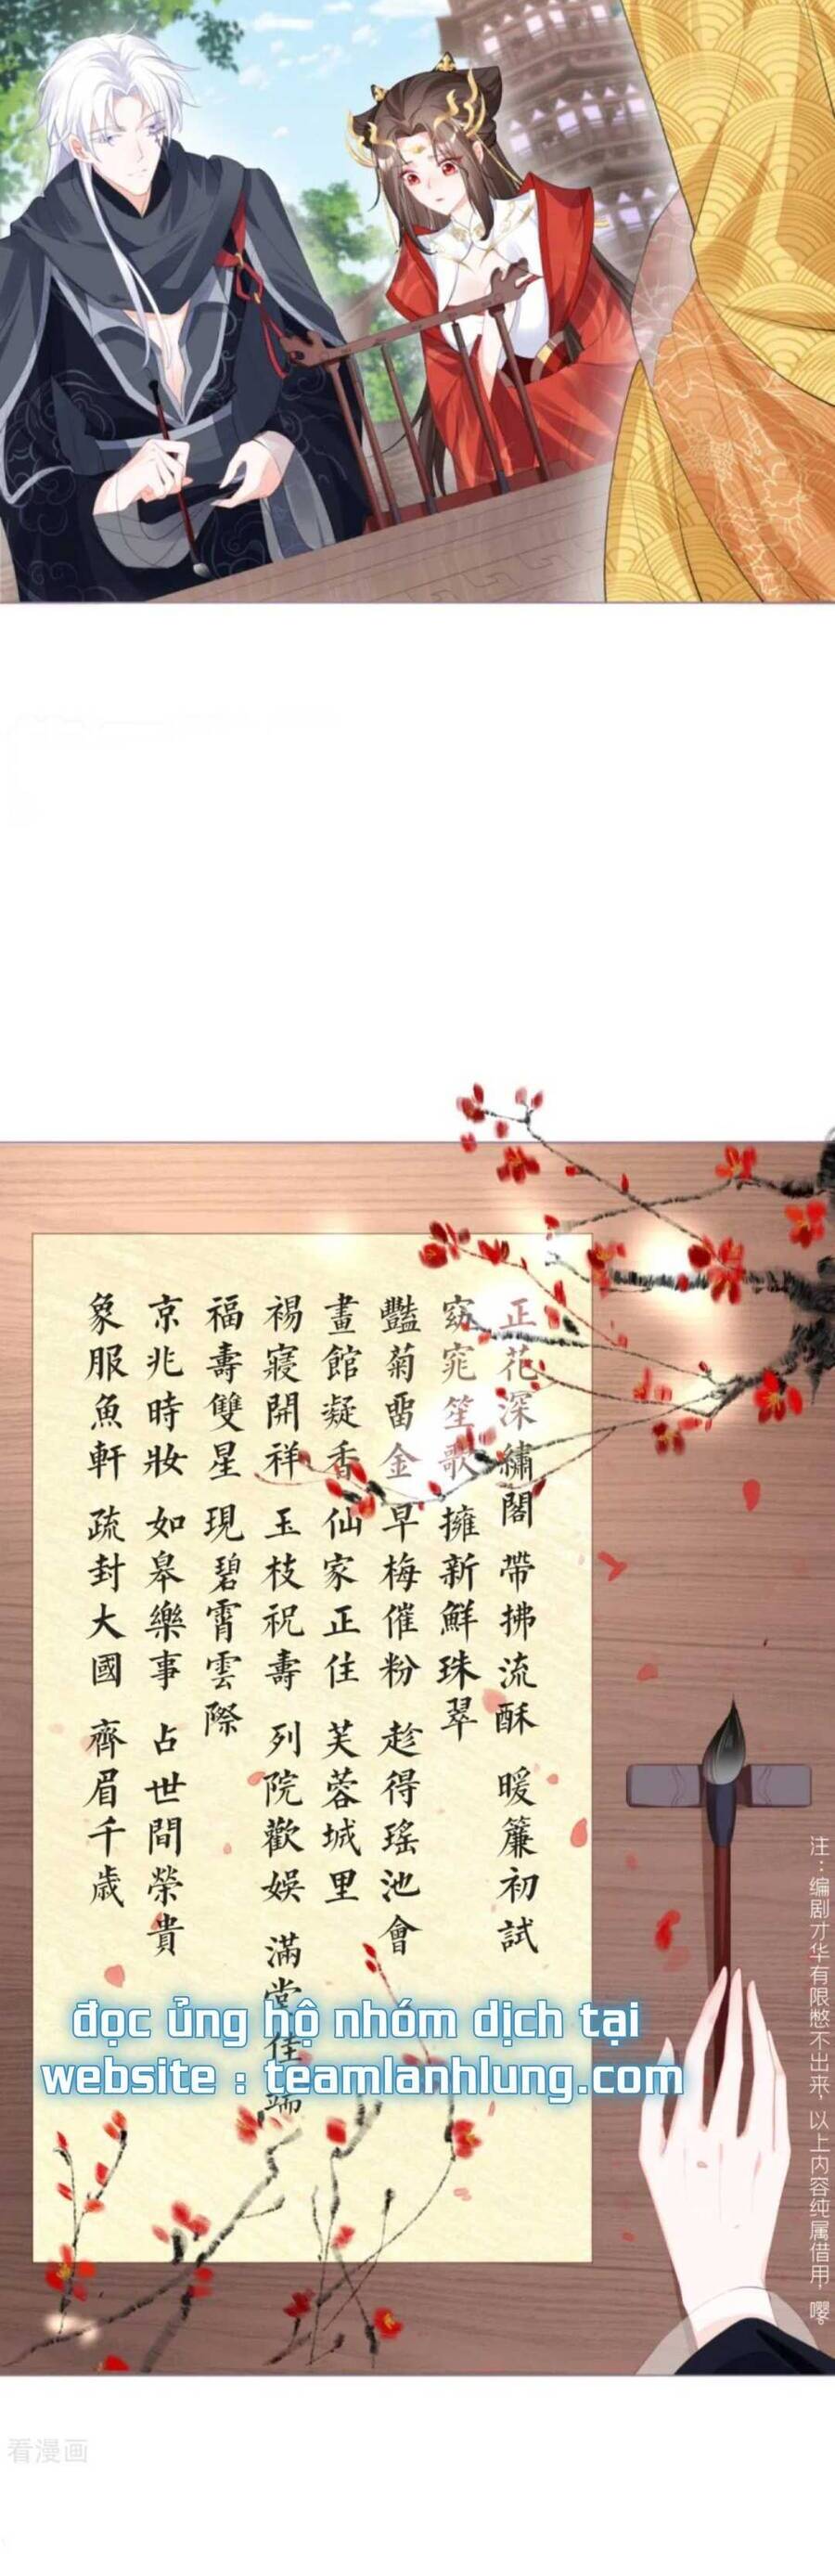 正花深繡閣 帶拂流酥 暖簾初試
窈窕笙歌 擁新鮮珠翠
豔菊畱金 早梅催粉 趁得瑤池會
畫館凝香 仙家正住 芙蓉城里
裼寢開祥 玉枝祝壽 列院歡娛 滿堂佳瑞
福壽雙星 現碧霄雲際
京兆時妝 如皋樂事 占世間榮貴
象服魚軒 疏封大國 齊眉千歲
đọc ủng hộ nhóm dịch tại
website : teamlanhlung.com
注：编剧才华有限憋不出来，以上内容纯属借用，嘤。
看漫画